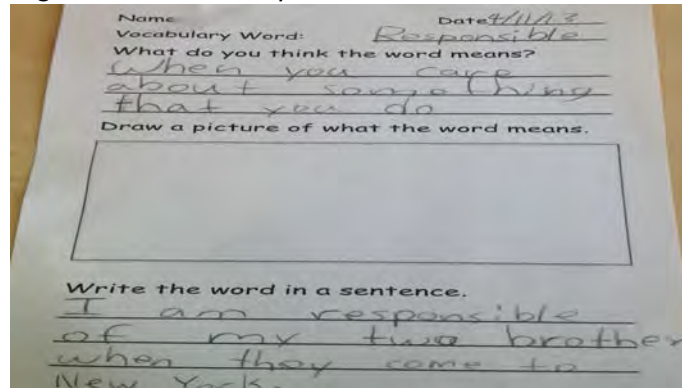 Name Date 4/11/13
Vocabulary Word: Responsible
What do you think the word means?
When you care
about something
that you do
Draw a picture of what the word means.
Write the word in a sentence.
I am responsible
of my two brother
when they come to
New York.